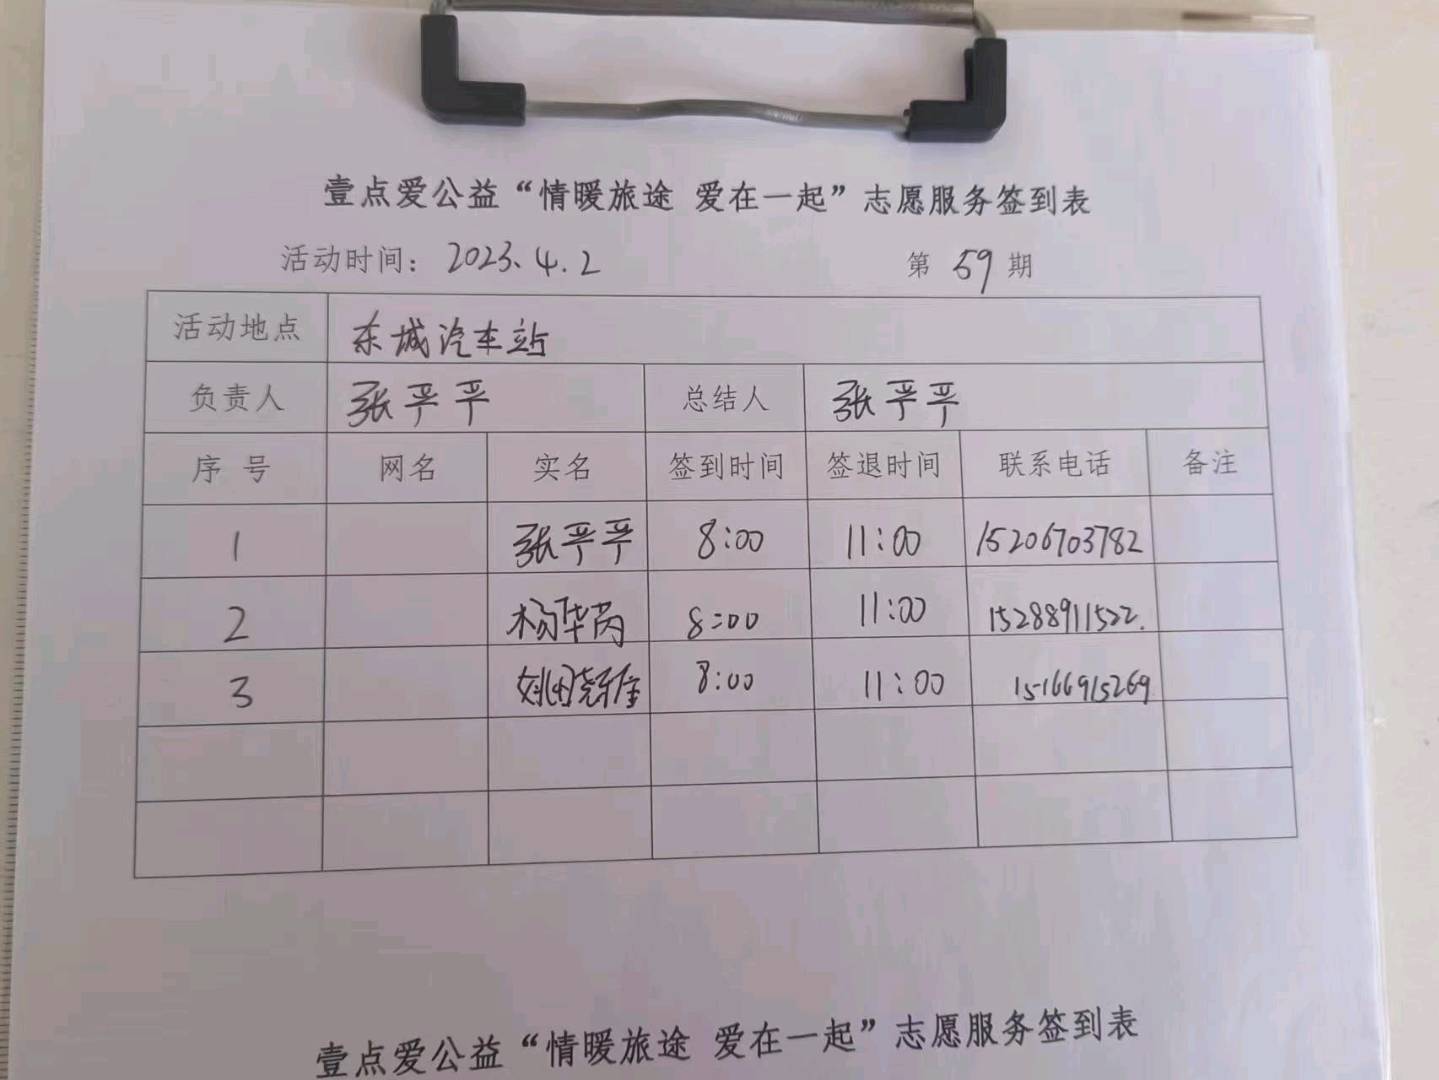 壹点爱公益“情暖旅途 爱在一起”志愿服务签到表
活动时间：2023.4.2 第 59 期
活动地点 东城汽车站
负责人 张平平 总结人 张平平
序号 网名 实名 签到时间 签退时间 联系电话 备注
1 张平平 8:00 11:00 15206703782
2 杨华芮 8:00 11:00 15288911522.
3 8:00 11:00 15166915269
壹点爱公益“情暖旅途 爱在一起”志愿服务签到表